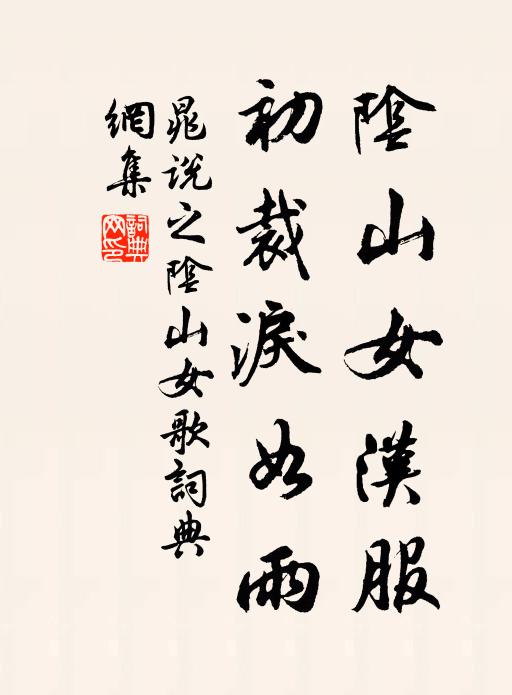 陰山女漢服
初裁淚如雨
晁說之陰山女歌詞典
網集
詞典
网印